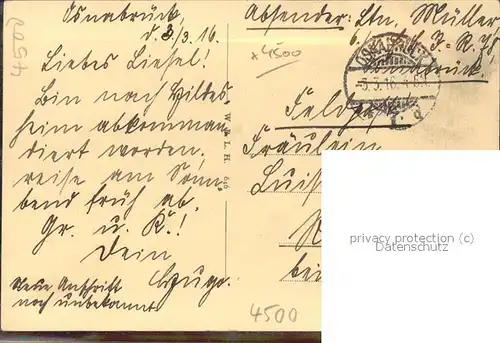 Osnabrück,
d. 3/3.16.
Liebes Liesel!
Bin nach Hildes-
heim abkomman-
diert worden,
reise am Sonn-
abend früh ab.
Gr. u. K.!
Dein
Hugo.
Neue Anschrift
noch unbekannt.
4507
W. L. H.
Absender: Ltn. Müller
J.-R. 78
Osnabrück.
+4500
OSNABRÜCK
3.3.16.
Feldpost
Fräulein
Luis
bei
4500
privacy protection (c)
Datenschutz